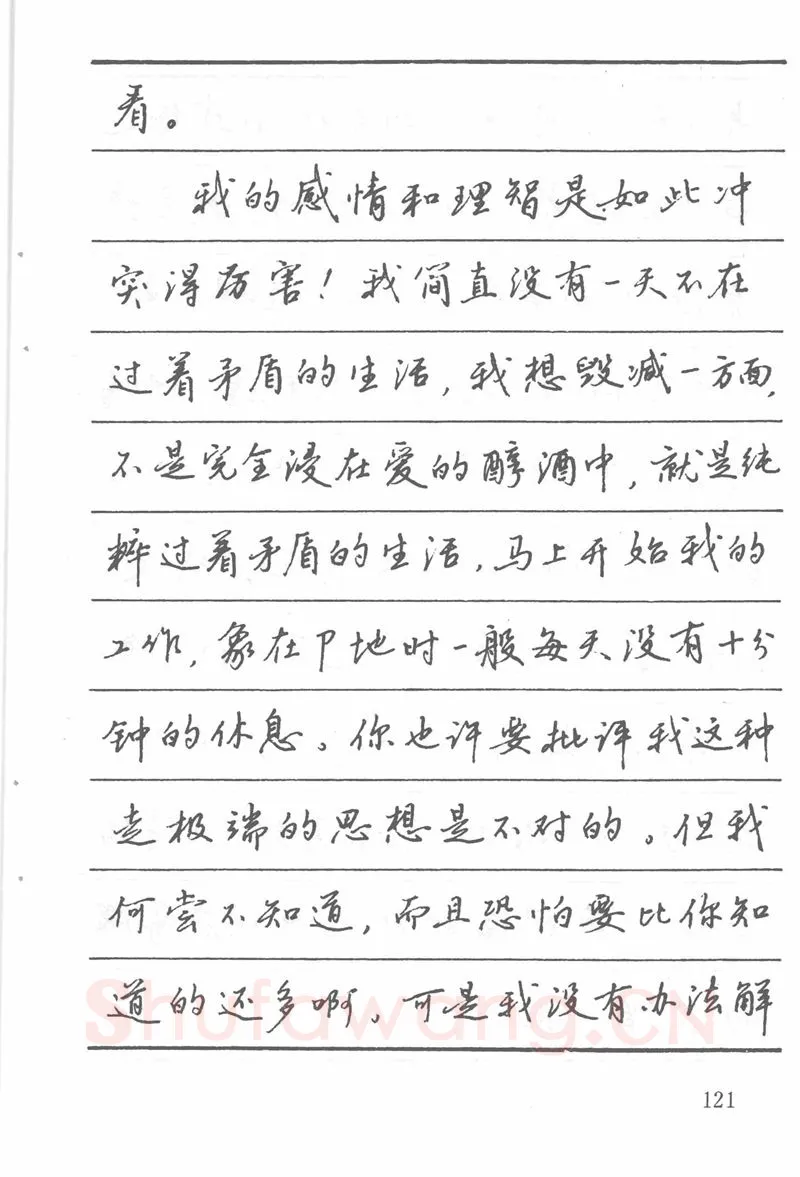 看。
我的感情和理智是如此冲
突得厉害！我简直没有一天不在
过着矛盾的生活，我想毁减一方面，
不是完全浸在爱的醇酒中，就是纯
粹过着矛盾的生活，马上开始我的
工作，象在P地时一般每天没有十分
钟的休息。你也许要批评我这种
走极端的思想是不对的。但我
何尝不知道，而且恐怕要比你知
道的还多啊。可是我没有办法解
Shufawang.CN
121